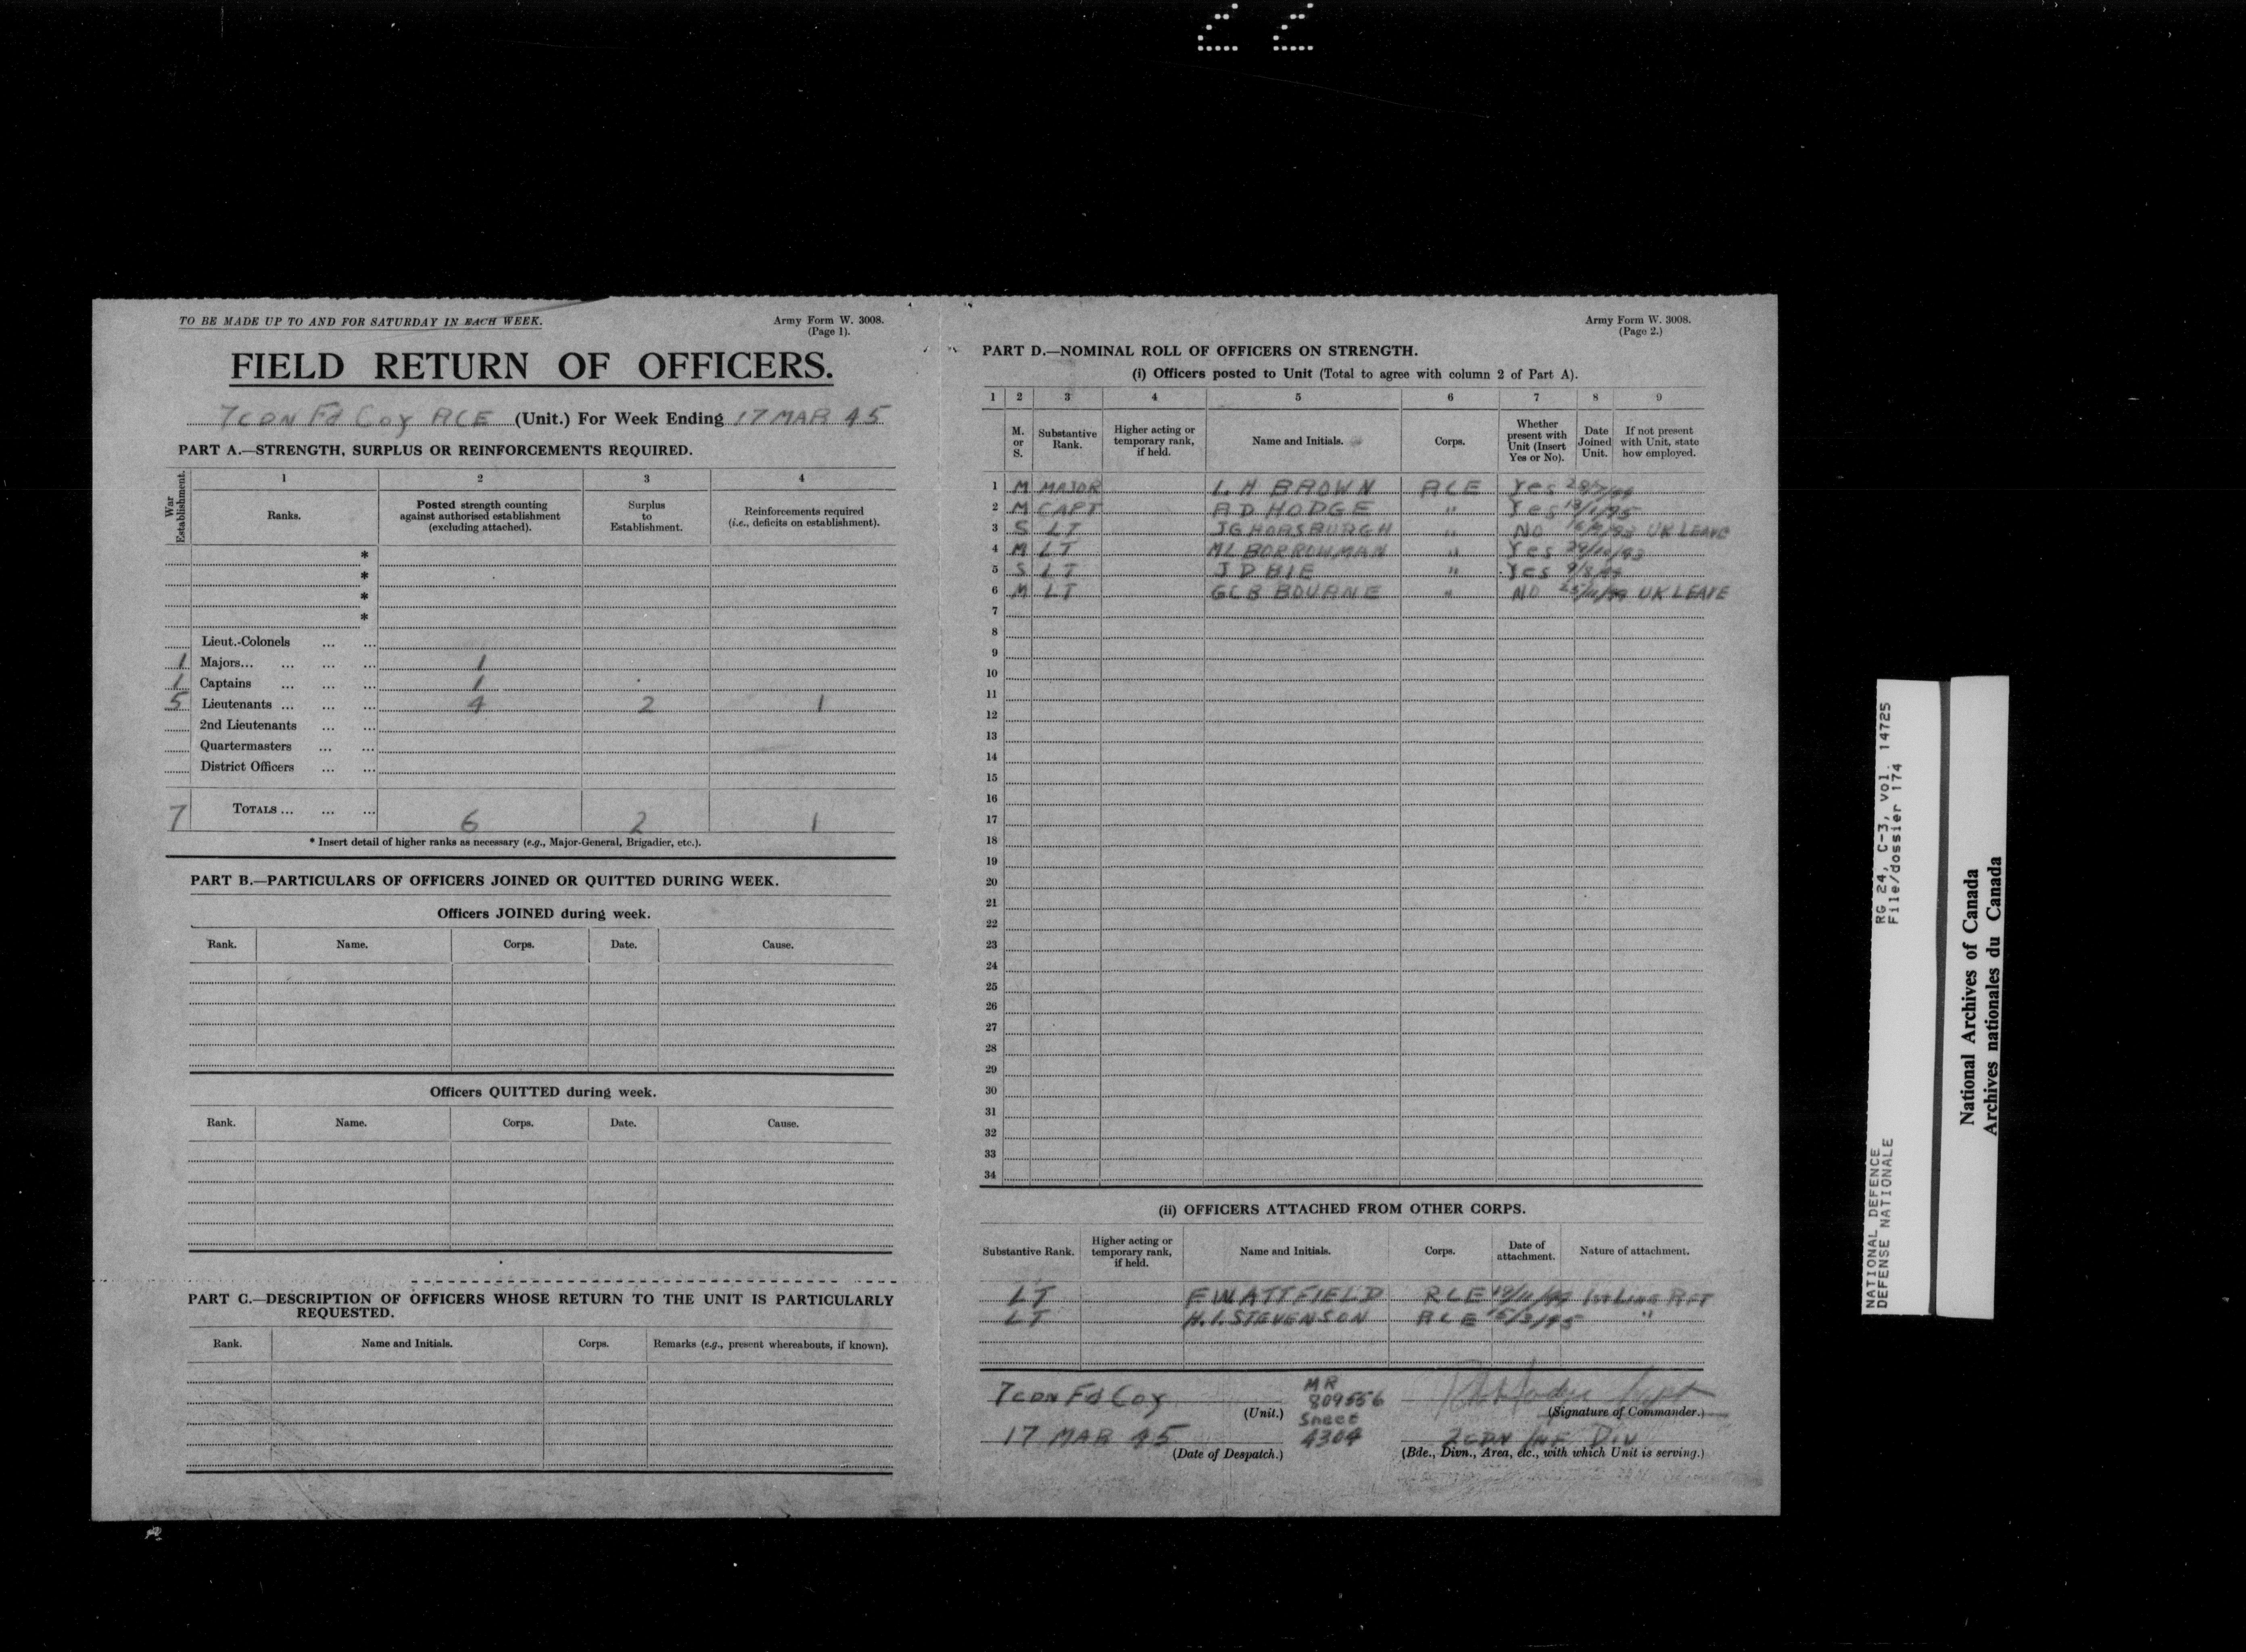 TO BE MADE UP TO AND FOR SATURDAY IN EACH WEEK.
Army Form W. 3008.
(Page 1).
FIELD RETURN OF OFFICERS.
7 CDN Fd Coy RCE (Unit.) For Week Ending 17 MAR 45
PART A.—STRENGTH, SURPLUS OR REINFORCEMENTS REQUIRED.
War Establishment.
1 2 3 4
Ranks.
Posted strength counting against authorised establishment (excluding attached).
Surplus to Establishment.
Reinforcements required (i.e., deficits on establishment).
*
*
*
*
Lieut.-Colonels ... ...
1 Majors... ... ... ... 1
1 Captains ... ... ... 1
5 Lieutenants ... ... ... 4 2 1
2nd Lieutenants ... ...
Quartermasters ... ...
District Officers ... ...
7 TOTALS ... ... ... 6 2 1
* Insert detail of higher ranks as necessary (e.g., Major-General, Brigadier, etc.).
PART B.—PARTICULARS OF OFFICERS JOINED OR QUITTED DURING WEEK.
Officers JOINED during week.
Rank. Name. Corps. Date. Cause.
Officers QUITTED during week.
Rank. Name. Corps. Date. Cause.
PART C.—DESCRIPTION OF OFFICERS WHOSE RETURN TO THE UNIT IS PARTICULARLY
REQUESTED.
Rank. Name and Initials. Corps. Remarks (e.g., present whereabouts, if known).
Army Form W. 3008.
(Page 2.)
PART D.—NOMINAL ROLL OF OFFICERS ON STRENGTH.
(i) Officers posted to Unit (Total to agree with column 2 of Part A).
1 2 3 4 5 6 7 8 9
M. or S.
Substantive Rank.
Higher acting or temporary rank, if held.
Name and Initials.
Corps.
Whether present with Unit (Insert Yes or No).
Date Joined Unit.
If not present with Unit, state how employed.
1 M MAJOR H BROWN RCE Yes
2 M CAPT R D HODGE " Yes
3 S LT JG HORSBURGH " NO UK LEAVE
4 M LT ML BORROWMAN " Yes
5 S LT J D " Yes 9/8/44
6 M LT GCB BOURNE " NO UK LEAVE
7
8
9
10
11
12
13
14
15
16
17
18
19
20
21
22
23
24
25
26
27
28
29
30
31
32
33
34
(ii) OFFICERS ATTACHED FROM OTHER CORPS.
Substantive Rank.
Higher acting or temporary rank, if held.
Name and Initials.
Corps.
Date of attachment.
Nature of attachment.
LT RCE 19/11/44 1st Line RFT
LT STEVENSON RCE 15/3/45 "
7 CDN Fd Coy
(Unit.)
MR
809556
Sheet
4304
(Signature of Commander.)
17 MAR 45
(Date of Despatch.)
2 CDN INF DIV
(Bde., Divn., Area, etc., with which Unit is serving.)
RG 24, C-3, vol. 14725
File/dossier 174
NATIONAL DEFENCE
DEFENSE NATIONALE
National Archives of Canada
Archives nationales du Canada